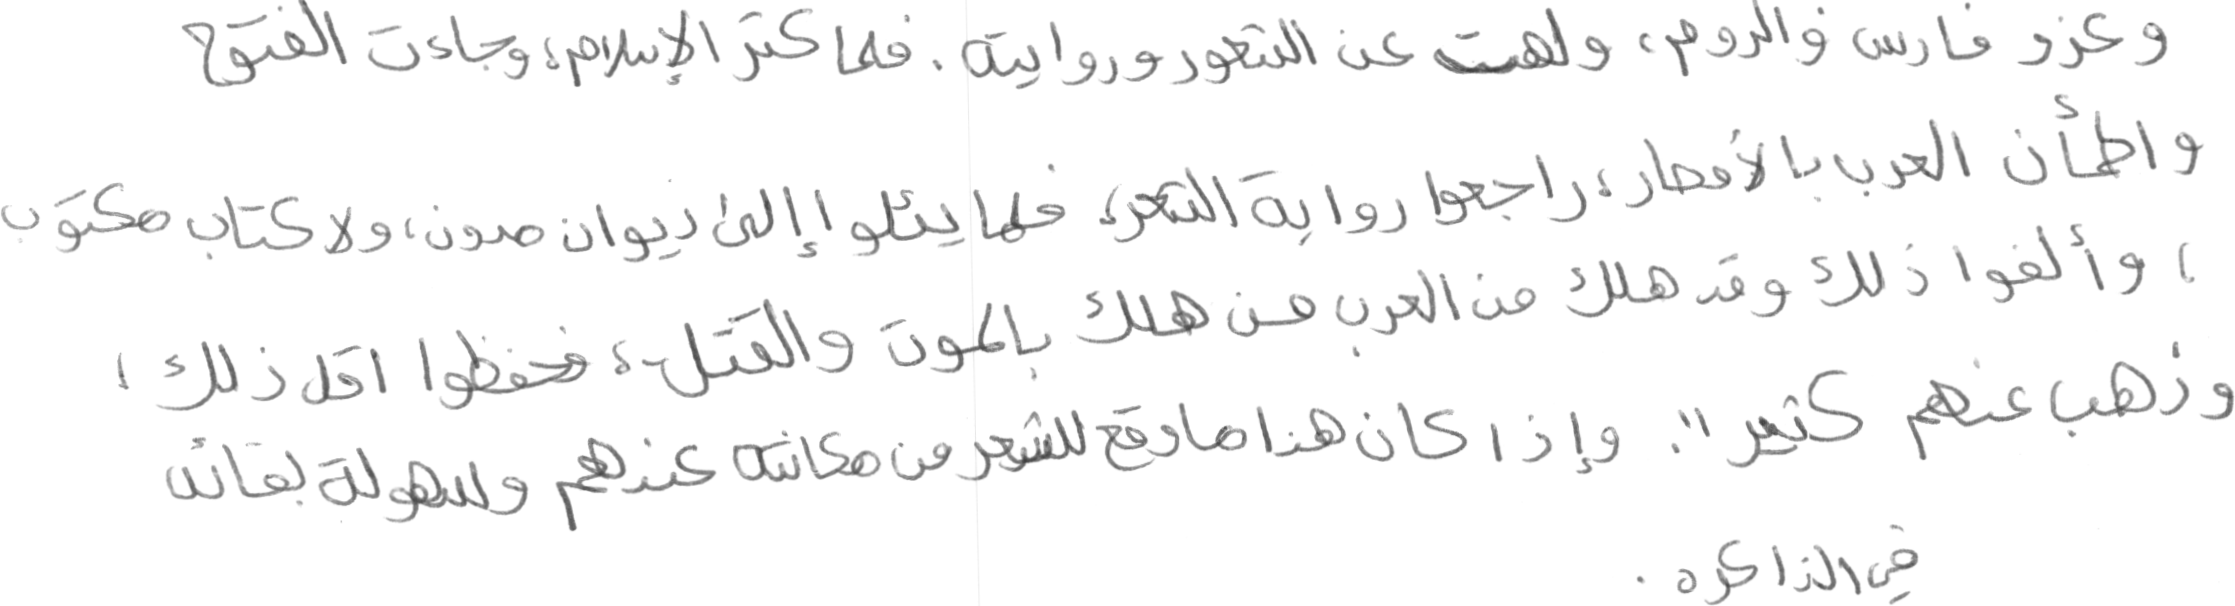 وغزو فارس والروم، ولهت عن الشعور وروايته. فلما كثر الإسلام، وجاءت الفتوح
واطمأن العرب بالأمصار، راجعوا رواية الشعر، فلما يئلوا إلى ديوان مدون، ولا كتاب مكتوب
، وألفوا ذلك وقد هلك من العرب من هلك بالموت والقتل، فحفظوا اقل ذلك ،
وذهب عنهم كثير". وإذا كان هذا ما وقع للشعر من مكانته عندهم ولسهولة بقائه
في الذاكره .